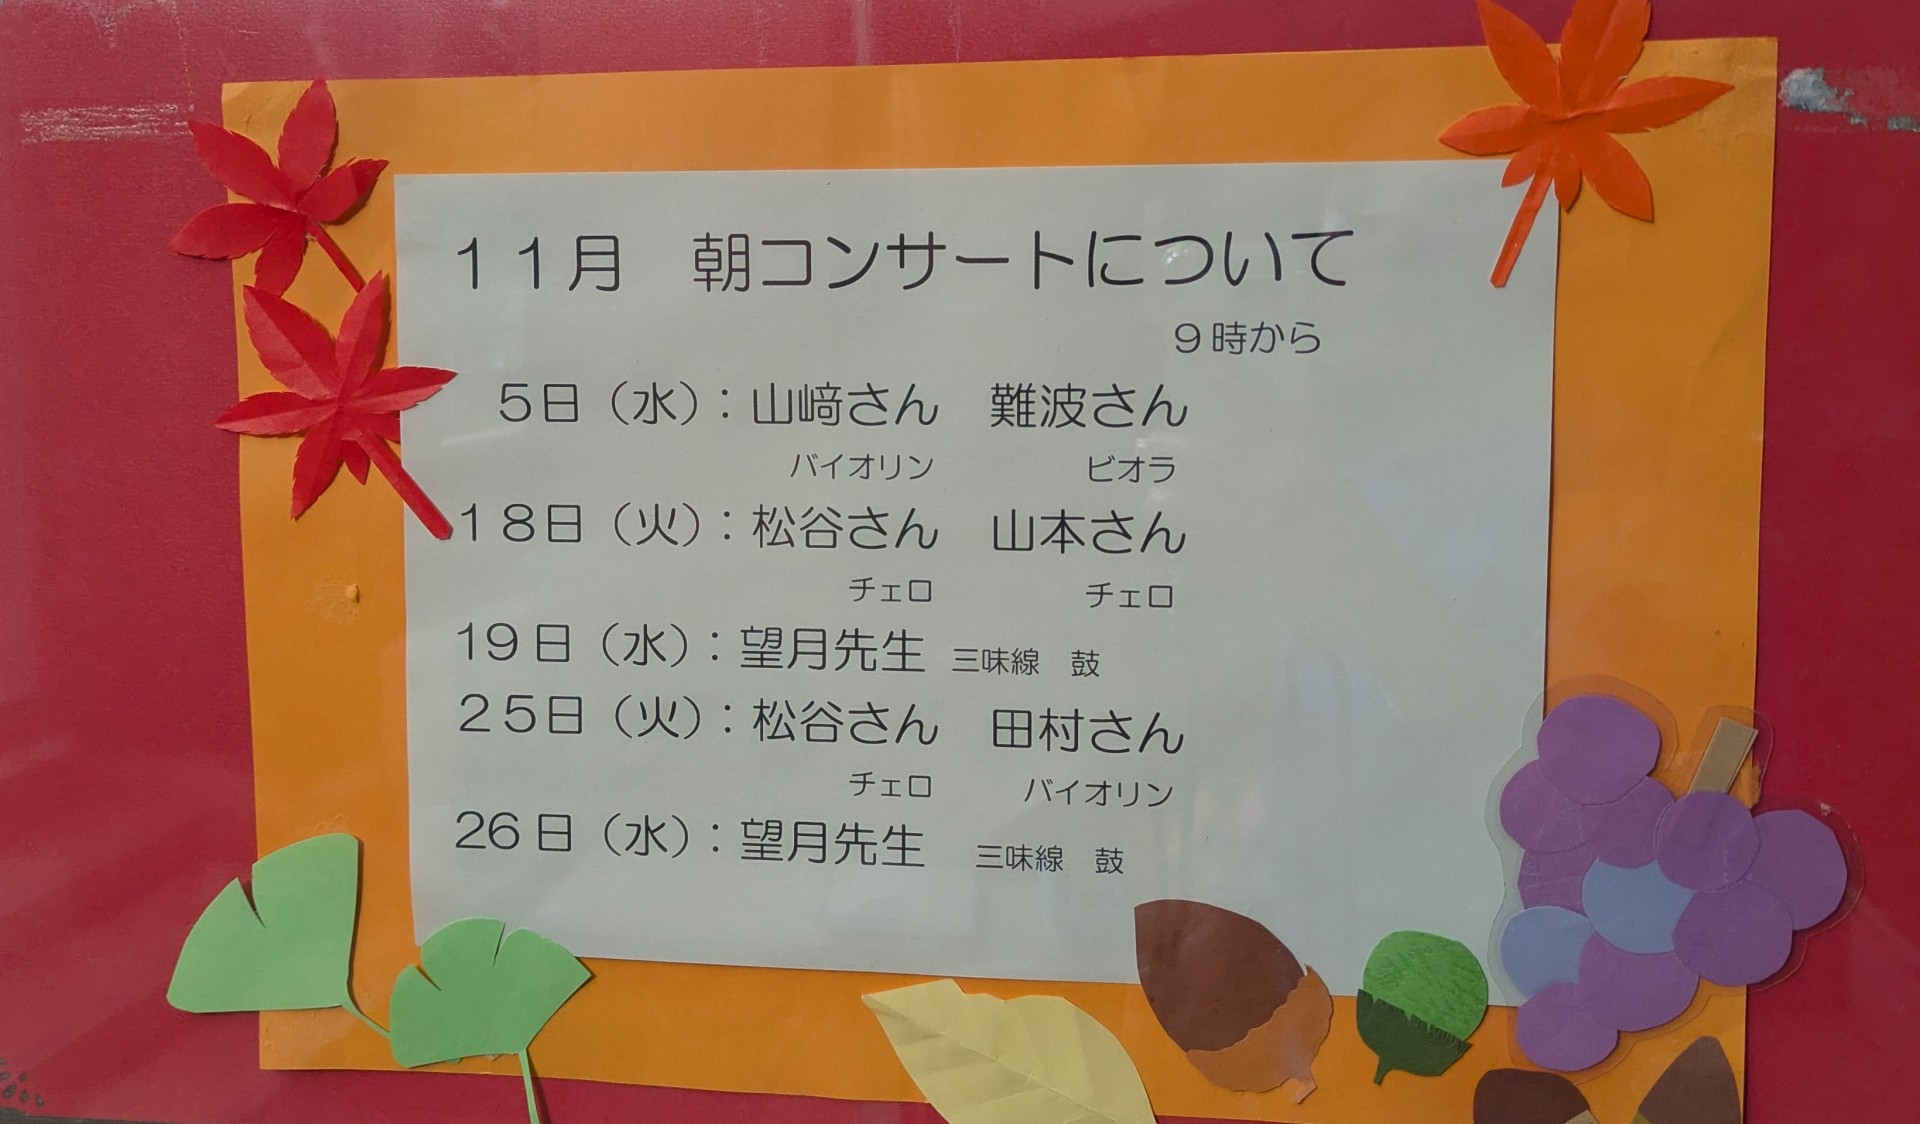 １１月　朝コンサートについて
９時から
５日（水）：山﨑さん　難波さん
バイオリン　ビオラ
１８日（火）：松谷さん　山本さん
チェロ　チェロ
19日（水）：望月先生　三味線　鼓
２５日（火）：松谷さん　田村さん
チェロ　バイオリン
26日（水）：望月先生　三味線　鼓